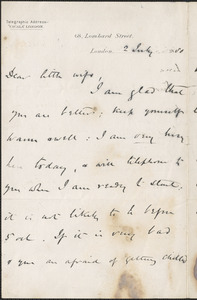 Telegraphic Address:
68, Lombard Street,
London, 2 July
Dear little wife,
I am glad that
you are better; keep yourself
warm & well: I am very busy
here today, & will telephone to
you when I am ready to start,
it is not likely to be before
5 o'ck. If it is very bad
& you are afraid of getting chilled